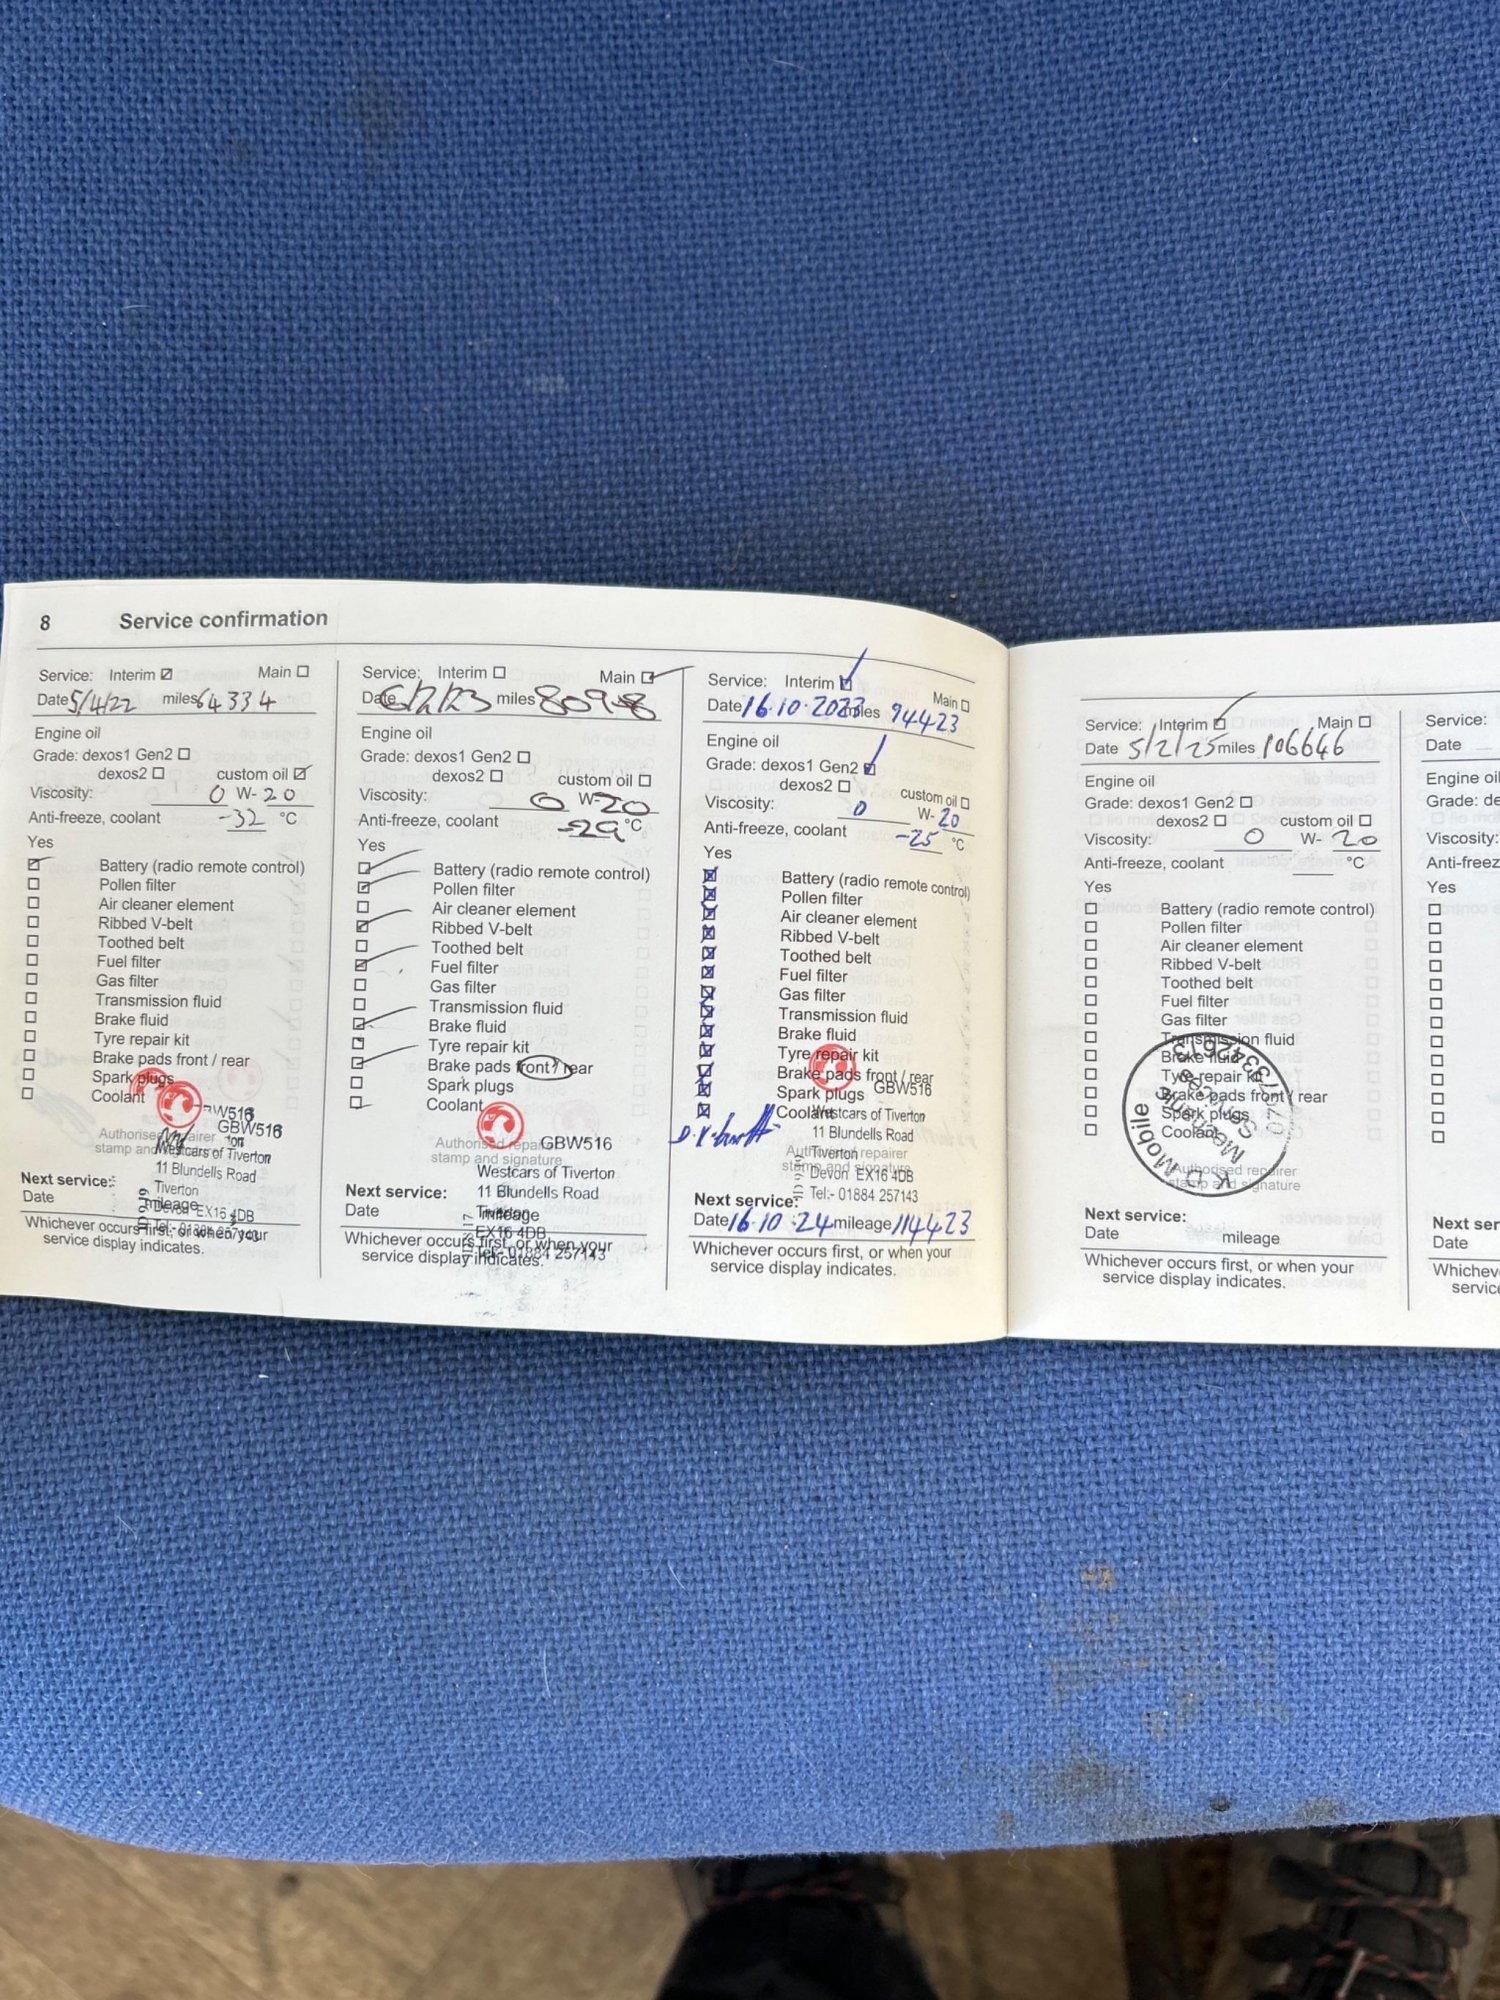 8 Service confirmation
Service: Interim Main
Date 5/4/22 miles 64334
Engine oil
Grade: dexos1 Gen2
dexos2 custom oil
Viscosity: 0 W- 20
Anti-freeze, coolant -32 °C
Yes
Battery (radio remote control)
Pollen filter
Air cleaner element
Ribbed V-belt
Toothed belt
Fuel filter
Gas filter
Transmission fluid
Brake fluid
Tyre repair kit
Brake pads front / rear
Spark plugs
Coolant
GBW516
Authorised repairer
stamp and
Westcars of Tiverton
11 Blundells Road
Tiverton
Devon EX16 4DB
Next service:
Date mileage
Whichever occurs first, or when your
service display indicates.
Service: Interim Main
Date 6/2/23 miles
Engine oil
Grade: dexos1 Gen2
dexos2 custom oil
Viscosity: 0 W- 20
Anti-freeze, coolant -29 °C
Yes
Battery (radio remote control)
Pollen filter
Air cleaner element
Ribbed V-belt
Toothed belt
Fuel filter
Gas filter
Transmission fluid
Brake fluid
Tyre repair kit
Brake pads front / rear
Spark plugs
Coolant
GBW516
Authorised repairer
stamp and signature
Westcars of Tiverton
11 Blundells Road
Tiverton
EX16 4DB
Tel:- 01884 257143
Next service:
Date mileage
Whichever occurs first, or when your
service display indicates.
Service: Interim Main
Date 16.10.2023 miles 94423
Engine oil
Grade: dexos1 Gen2
dexos2 custom oil
Viscosity: 0 W- 20
Anti-freeze, coolant -25 °C
Yes
Battery (radio remote control)
Pollen filter
Air cleaner element
Ribbed V-belt
Toothed belt
Fuel filter
Gas filter
Transmission fluid
Brake fluid
Tyre repair kit
Brake pads front / rear
Spark plugs
Coolant
GBW516
Westcars of Tiverton
11 Blundells Road
Tiverton
Devon EX16 4DB
Tel:- 01884 257143
Authorised repairer
stamp and signature
Next service:
Date 16.10.24 mileage 114423
Whichever occurs first, or when your
service display indicates.
Service: Interim Main
Date 5/2/25 miles 106646
Engine oil
Grade: dexos1 Gen2
dexos2 custom oil
Viscosity: 0 W- 20
Anti-freeze, coolant °C
Yes
Battery (radio remote control)
Pollen filter
Air cleaner element
Ribbed V-belt
Toothed belt
Fuel filter
Gas filter
Transmission fluid
Brake fluid
Tyre repair kit
Brake pads front / rear
Spark plugs
Coolant
Mobile
Authorised repairer
stamp and signature
Next service:
Date mileage
Whichever occurs first, or when your
service display indicates.
Service:
Date
Engine oil
Grade:
Viscosity:
Yes
Date